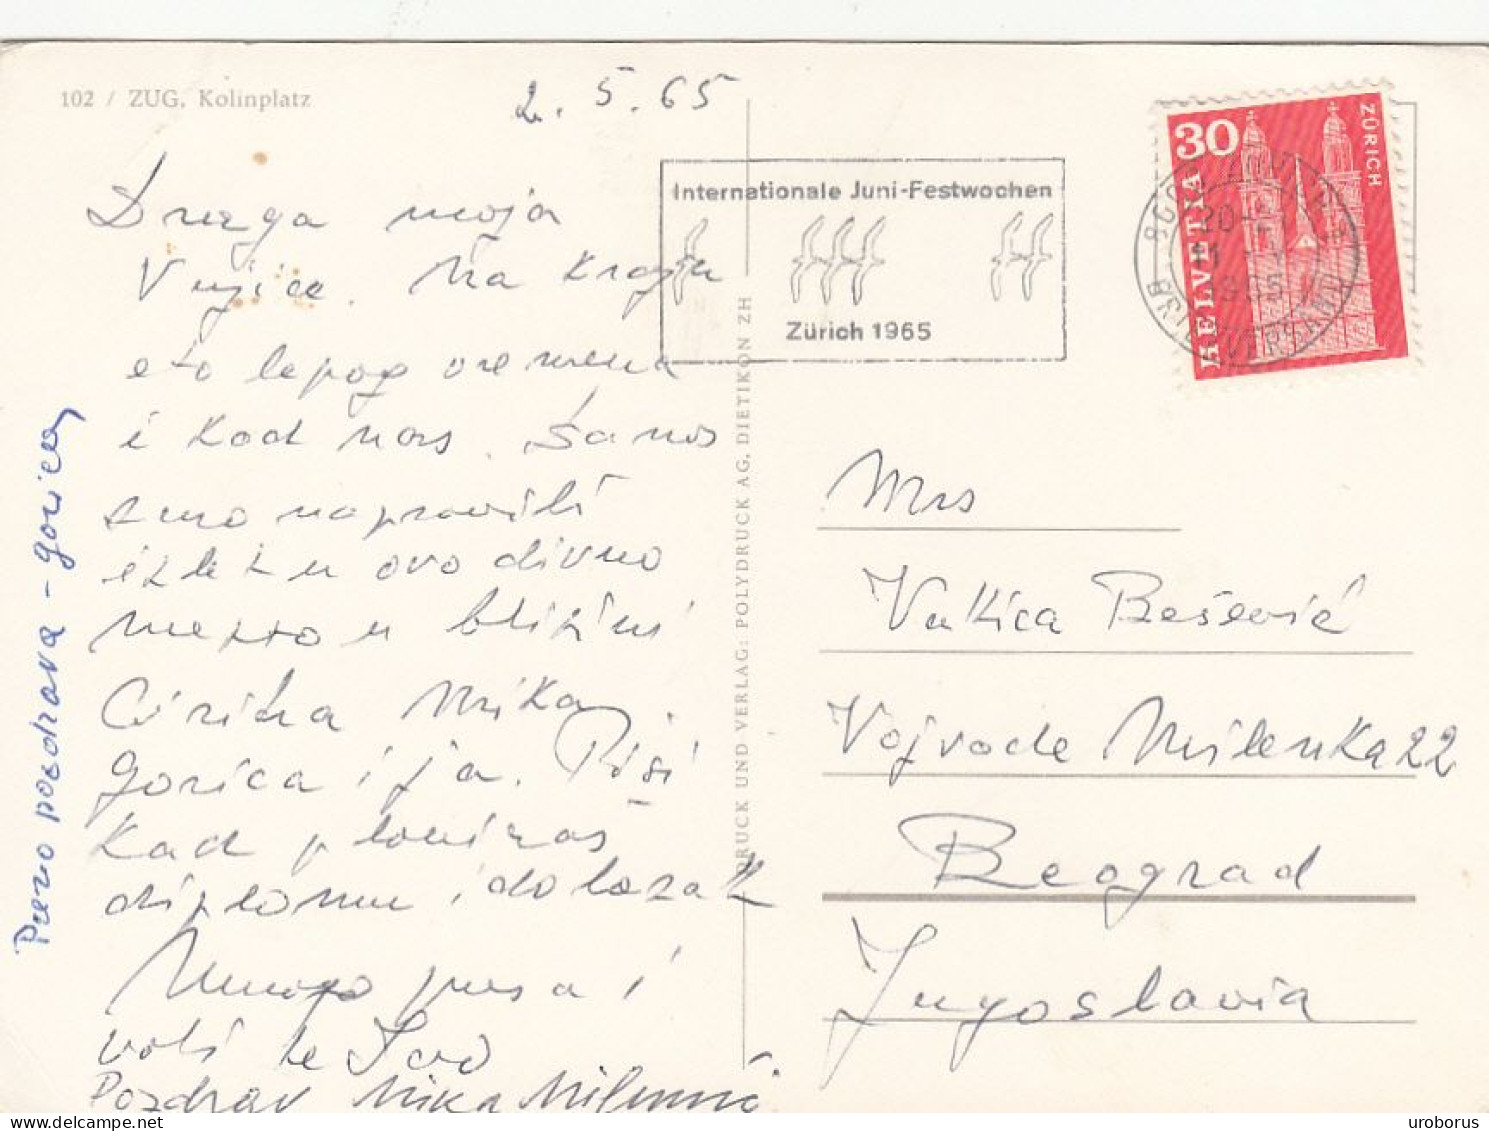 102 / ZUG, Kolinplatz
2. 5. 65
Internationale Juni-Festwochen
Zürich 1965
30
HELVETIA
ZÜRICH
1965
BRIEFVERSAND
Draga moja
Vujice. Na kraju
eto lepog vremena
i kod nas. Danas
smo napravili
izlet u ovo divno
mesto u blizini
Ciriha Mika,
Gorica i ja. Piši
kad planiraš
diplomu i dolazak
Mnogo pusa i
voli te
Pozdrav Mika
Puno pozdrava - Gorica
DRUCK UND VERLAG: POLYDRUCK AG, DIETIKON ZH
Mrs
Vukica Bešević
Vojvode Milenka 22
Beograd
Jugoslavia
uroborus